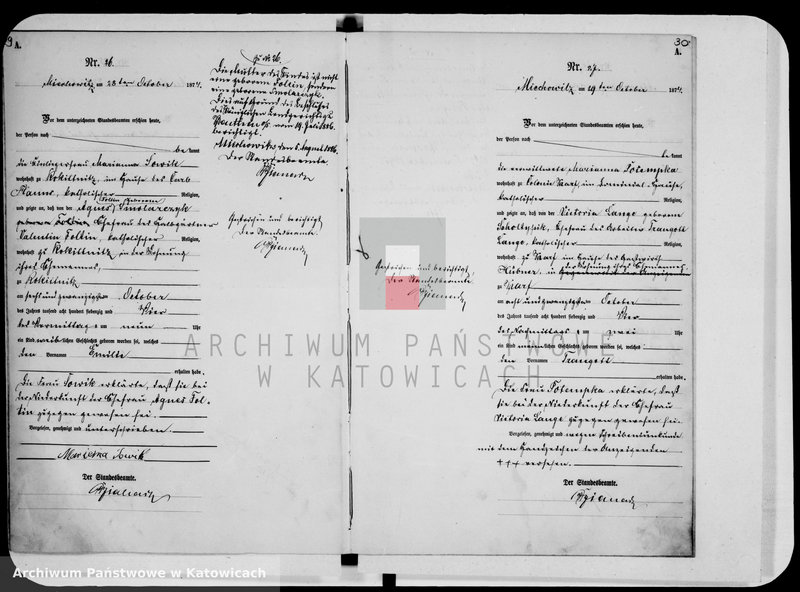 9
A.
Nr. 26.
Miechowitz am 28ten October 1874.
Vor dem unterzeichneten Standesbeamten erschien heute,
der Person nach
bekannt
die Häuslerfrau Marianna Sowik
wohnhaft zu Rokittnitz, im Hause des Carl
katholischer Religion,
und zeigte an, daß von der Agnes Smolarczyk
Foltin geborenen
geborene Foltin Ehefrau des
Valentin Foltin, katholischer Religion,
wohnhaft zu Rokittnitz in der Wohnung
ihres Ehemannes,
zu Rokittnitz
am sechs und zwanzigsten October
des Jahres tausend acht hundert siebenzig und Vier
des Vormittags um neun Uhr
ein Kind weiblichen Geschlechts geboren worden sei, welches
den Vornamen Emilie
erhalten habe.
Die Frau Sowik erklärte, daß sie bei
der Niederkunft der Ehefrau Agnes Foltin
zugegen gewesen sei.
Vorgelesen, genehmigt und unterschrieben.
Marianna Sowik
Der Standesbeamte.
zu Nr 26.
Die Mutter des Kindes ist nicht
eine geborene Foltin, sondern
eine geborene Smolarczyk.
Dies auf Grund des Beschlusses
des Königlichen Amtsgerichts
Beuthen O/S vom 19. Juli 1886
berichtigt.
Miechowitz den 6. August 1886.
Der Standesbeamte.
Gestrichen und berichtigt
der Standesbeamte.
Gestrichen und berichtigt,
der Standesbeamte
30
A.
Nr. 27.
Miechowitz am 29ten October 1874.
Vor dem unterzeichneten Standesbeamten erschien heute,
der Person nach
bekannt
die verwittwete Marianna Potempka
wohnhaft zu Colonie Karf, im Dominial-Hause,
katholischer Religion,
und zeigte an, daß von der Victoria Lange geborenen
Ehefrau des Arbeiter Traugott
Lange, katholischer Religion,
wohnhaft zu Karf im Hause des Gastwirth
der Wohnung ihres Ehemannes
zu Karf
am acht und zwanzigsten October
des Jahres tausend acht hundert siebenzig und Vier
des Nachmittags um zwei Uhr
ein Kind männlichen Geschlechts geboren worden sei, welches
den Vornamen Traugott
erhalten habe.
Die Frau Potempka erklärte, daß
sie bei der Niederkunft der Ehefrau
Victoria Lange zugegen gewesen sei.
Vorgelesen, genehmigt und wegen Schreibensunkunde
mit dem Handzeichen der Anzeigenden
+++ versehen.
Der Standesbeamte.
ARCHIWUM PAŃSTWOWE
W KATOWICACH
Archiwum Państwowe w Katowicach